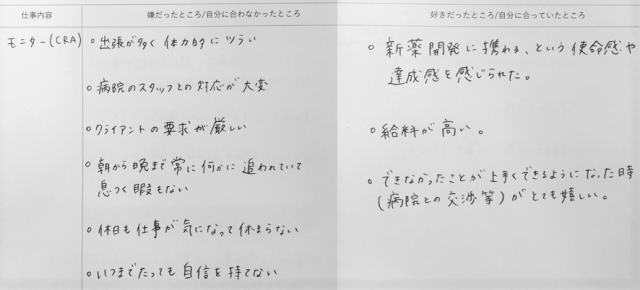 仕事内容
嫌だったところ/自分に合わなかったところ
好きだったところ/自分に合っていたところ
モニター(CRA)
○出張が多く 体力的にツラい
○病院のスタッフとの対応が大変
○クライアントの要求が厳しい
○朝から晩まで常に何かに追われていて
息つく暇もない
○休日も仕事が気になって休まらない
○いつまでたっても自信を持てない
○新薬開発に携わる、という使命感や
達成感を感じられた。
○給料が高い。
○できなかったことが上手くできるようになった時
(病院との交渉等)がとても嬉しい。